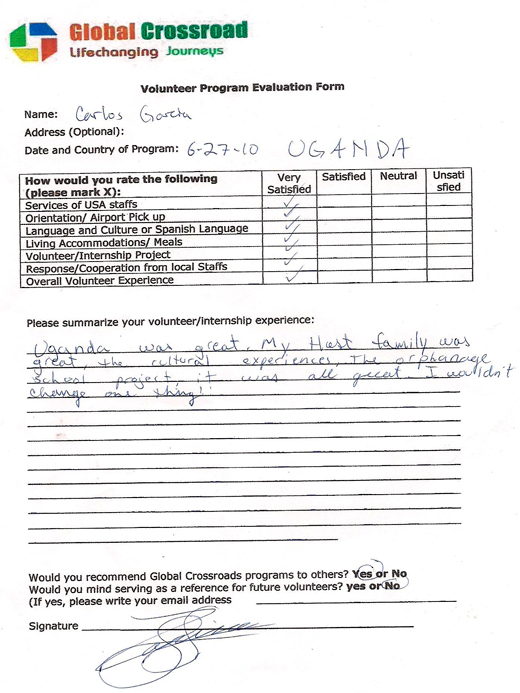 Global Crossroad
Lifechanging Journeys
Volunteer Program Evaluation Form
Name: Carlos Garcia
Address (Optional):
Date and Country of Program: 6-27-10 UGANDA
How would you rate the following (please mark X): Very Satisfied Satisfied Neutral Unsatisfied
Services of USA staffs ✓
Orientation/ Airport Pick up ✓
Language and Culture or Spanish Language ✓
Living Accommodations/ Meals ✓
Volunteer/Internship Project ✓
Response/Cooperation from local Staffs
Overall Volunteer Experience ✓
Please summarize your volunteer/internship experience:
Uganda was great. My Host family was
great, the cultural experiences, The orphanage
school project, it was all great. I wouldn't
change one thing!
Would you recommend Global Crossroads programs to others? Yes or No
Would you mind serving as a reference for future volunteers? yes or No
(If yes, please write your email address
Signature